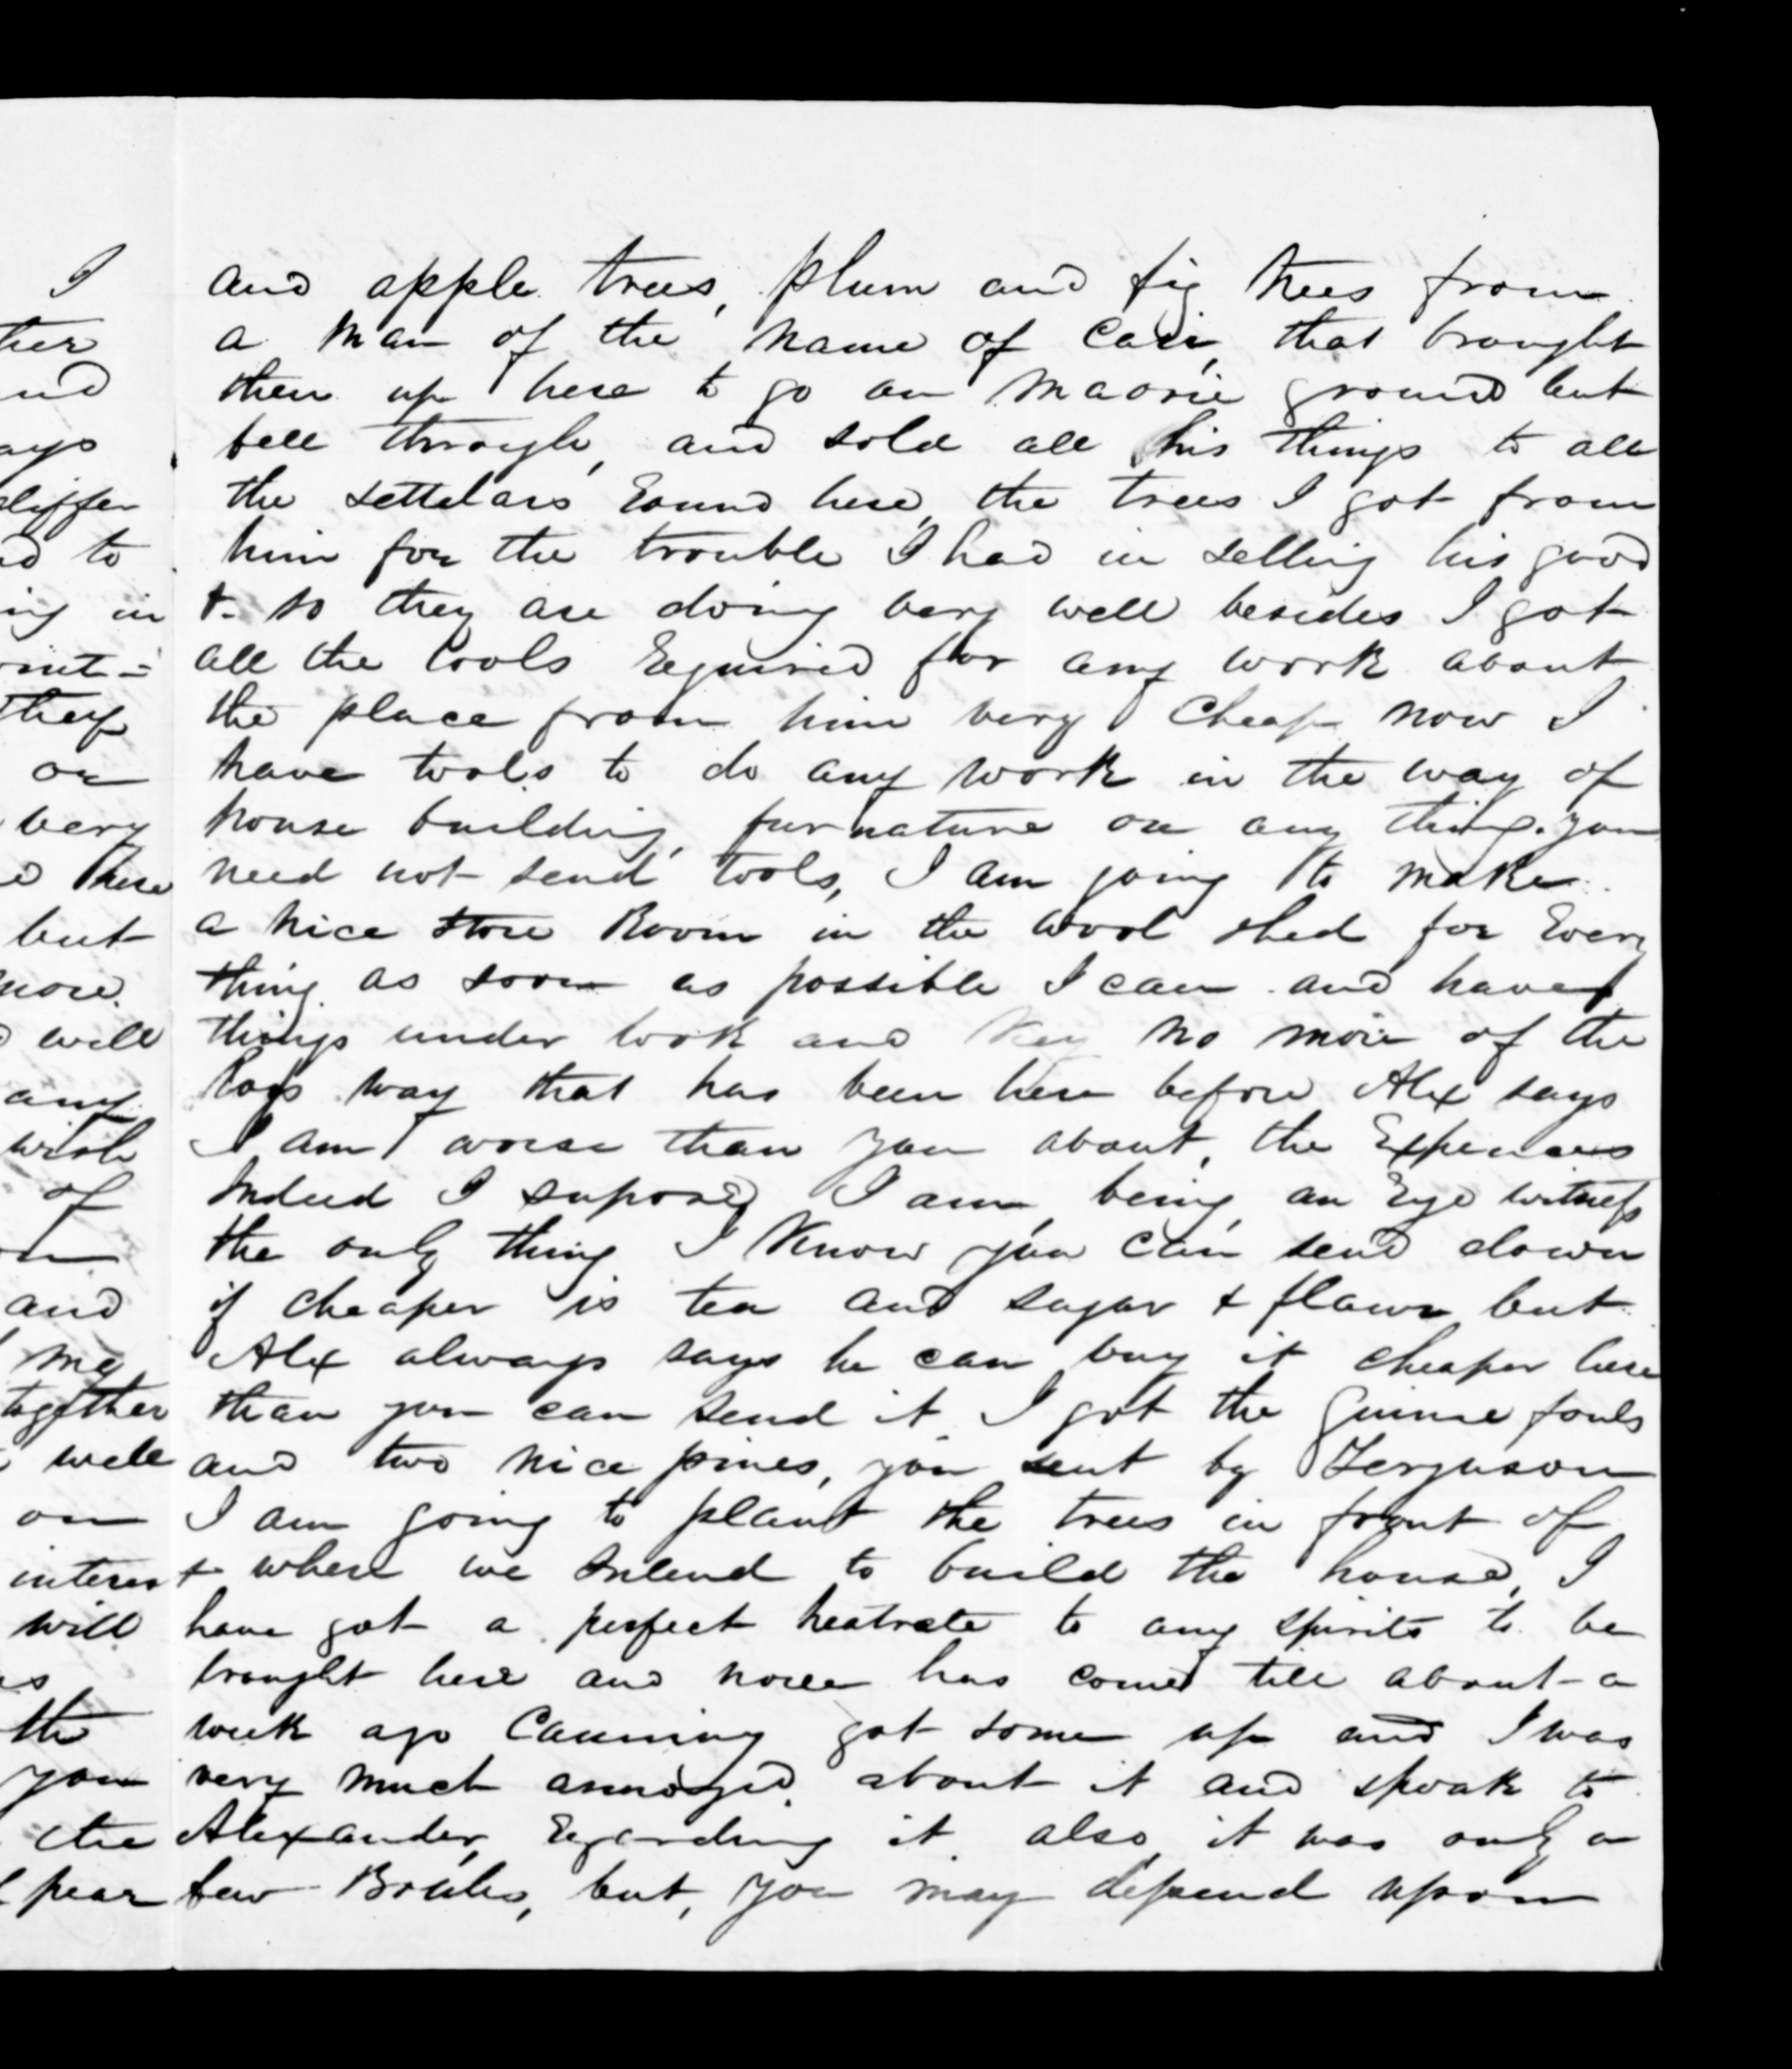 and apple trees, plum and fig trees from
a man of the name of that brought
them up here to go on Maorie ground but
fell through, and sold all his things to all
the settelars round here, the trees I got from
him for the trouble I had in selling his good
&. so they are doing very well besides I got
all the tools required for any work about
the place from him very cheap now I
have tools to do any work in the way of
house building, furnature or any thing. you
need not send tools, I am going to make
a nice store Room in the wool shed for Every
thing as soon as possible I can and have
things under lock and key no more of the
way that has been here before Alex says
I am worse than you about, the Expences
indeed I supose I am, being, an Eye witness
the only thing I know you can send down
if cheaper is tea and sugar & flawr but
Alex always says he can buy it cheaper here
than you can send it I got the Guinne fouls
and two nice pines, you sent by Ferguson
I am going to plant the trees in front of
where we intend to build the house, I
have got a perfect heatrate to any spirits to be
brought here and never has come till about a
week ago Canning got some up and I was
very much annoyed. about it and spoak to
Alexander, regarding it. also, it was only a
few Bottles, but, you may depend upon
I
and
differ
in
they
or
very
here
but
more.
will
any
wish
of
and
me
together
well
on
interest
will
the
you
the
pear